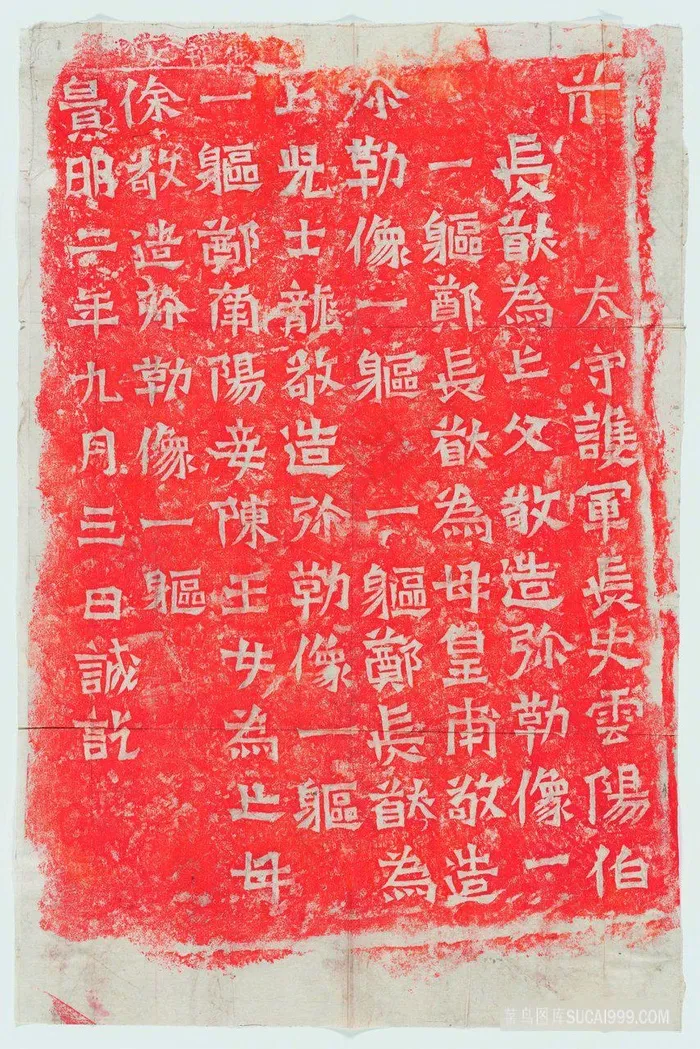 前太守護軍長史雲陽伯
長猷為亡父敬造弥勒像一
一軀鄭長猷為母皇甫敬造
弥勒像一軀一軀鄭長猷為
亡兒士龍敬造弥勒像一軀
一軀鄭南陽妾陳王女為亡母
徐敬造弥勒像一軀
景明二年九月三日誠訖
菜鸟图库SUCAI999.COM